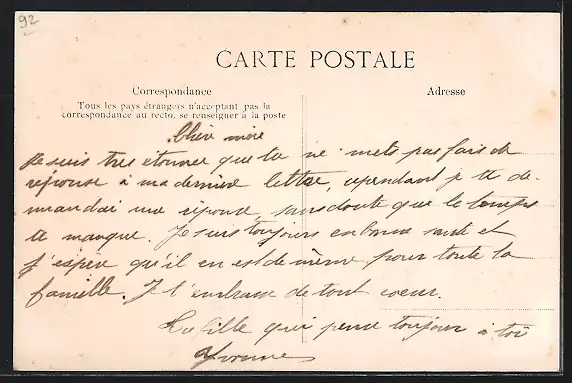 92
CARTE POSTALE
Correspondance
Adresse
Tous les pays étrangers n'acceptant pas la
correspondance au recto, se renseigner à la poste
Chère mère
Je suis très étonnée que tu ne mets pas fais de
réponse à ma dernière lettre, cependant je te de-
mandai une réponse, sans doute que le temps
te manque. Je suis toujours en bonne santé et
j'espère qu'il en est de même pour toute la
famille. Je t'embrasse de tout coeur.
Ta fille qui pense toujours à toi
Yvonne